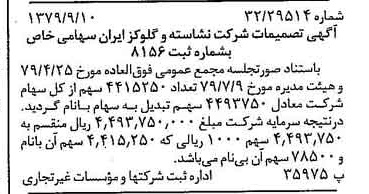 شماره ۳۲/۲۹۵۱۴ ۱۳۷۹/۹/۱۰
آگهی تصمیمات شرکت نشاسته و گلوکز ایران سهامی خاص
بشماره ثبت ۸۱۵۶
باستناد صورتجلسه مجمع عمومی فوق‌العاده مورخ ۷۹/۴/۲۵
و هیئت مدیره مورخ ۷۹/۷/۹ تعداد ۴۴۱۵۲۵۰ سهم از کل سهام
شرکت معادل ۴۴۹۳۷۵۰ سهم تبدیل به سهام بانام گردید.
درنتیجه سرمایه شرکت مبلغ ۴,۴۹۳,۷۵۰,۰۰۰ ریال منقسم به
۴,۴۹۳,۷۵۰ سهم ۱۰۰۰ ریالی که ۴,۴۱۵,۲۵۰ سهم آن بانام
و ۷۸۵۰۰ سهم آن بی‌نام می‌باشد.
پ ۳۵۹۷۵ اداره ثبت شرکتها و مؤسسات غیرتجاری